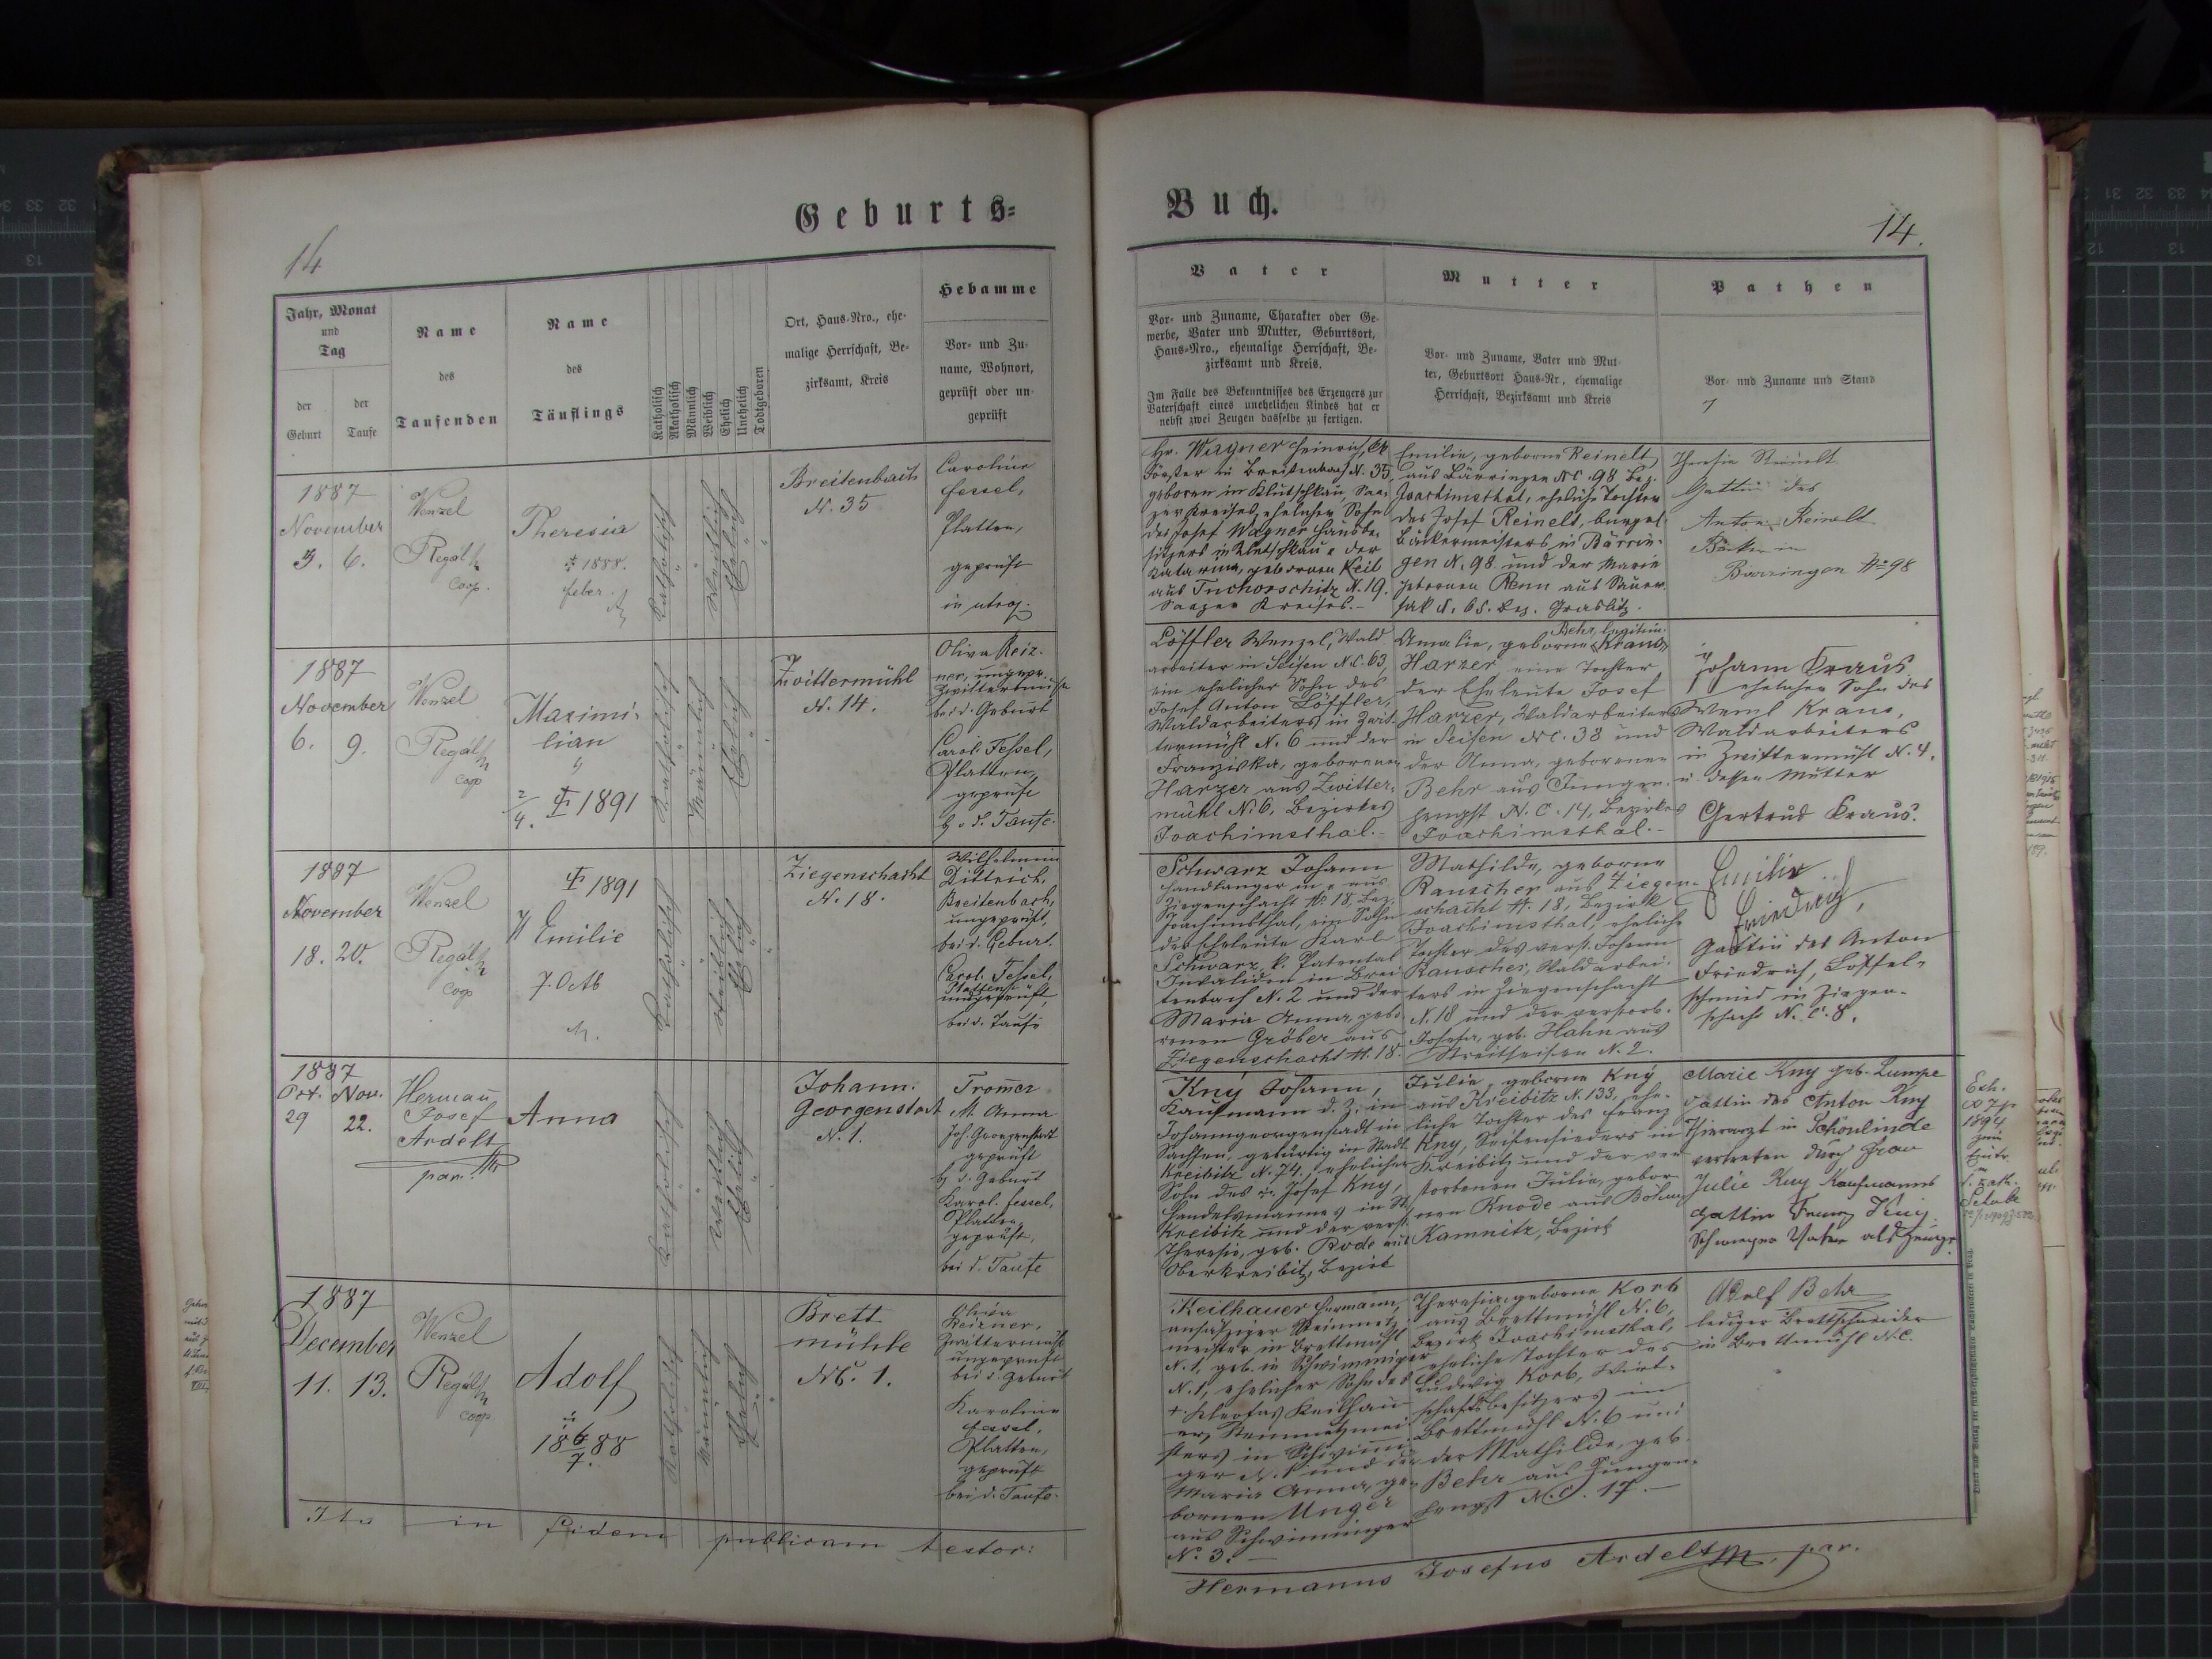 Geburts=
Buch.
14
14.
Jahr, Monat
und
Tag
der
Geburt
der
Taufe
Name
des
Taufenden
Name
des
Täuflings
Katholisch
Akatholisch
Männlich
Weiblich
Ehelich
Unehelich
Todtgeboren
Ort, Haus-Nro., ehe-
malige Herrschaft, Be-
zirksamt, Kreis
Hebamme
Vor- und Zu-
name, Wohnort,
geprüft oder un-
geprüft
Vater
Vor- und Zuname, Charakter oder Ge-
werbe, Vater und Mutter, Geburtsort,
Haus-Nro., ehemalige Herrschaft, Be-
zirksamt und Kreis.
Im Falle des Bekenntnisses des Erzeugers zur
Vaterschaft eines unehelichen Kindes hat er
nebst zwei Zeugen dasselbe zu fertigen.
Mutter
Vor- und Zuname, Vater und Mut-
ter, Geburtsort Haus-Nr, ehemalige
Herrschaft, Bezirksamt und Kreis
Pathen
Vor- und Zuname und Stand
1887
November
6.
Wenzel
Regal
Coop.
Theresia
1888.
feber.
Katholisch
Weiblich
Ehelich
Breitenbach
N. 35
Caroline
Fessel,
Platten,
geprüft
Hr. Wagner Heinrich,
Förster in Breitenbach N. 35,
geboren in Klutschkau, Saa-
zer Kreises, ehelicher Sohn
des Josef Wagner Hausbe-
sitzers in Klutschkau u. der
Katarina, geborenen Keil
aus Tuchorschitz N. 19.
Saazer Kreises.-
Emilie, geborne Reinelt
aus Bärringen NC. 98 Bez.
Joachimsthal, eheliche Tochter
des Josef Reinelt, bürgel.
Bäckermeisters in Bärrin-
gen N. 98 und der Marie
gebornen Renn aus Sauer-
sak N. 65. Bez. Graslitz.
Theresia Reinelt
Gattin des
Anton Reinelt
Bäcker in
Bärringen No 98
1887
November
6. 9.
Wenzel
Regal
Coop
Maximi-
lian
2/4. 1891
Katholisch
Männlich
Ehelich
Zwittermühl
N. 14.
Oliva Reiz-
ner, ungepr.
Zwittermühl
bei d. Geburt
Carol. Fessel,
Platten,
geprüft
b. d. Taufe.
Löffler Wenzel, Wald
arbeiter in Seifen N.C. 63,
ein ehelicher Sohn des
Josef Anton Löffler,
Waldarbeiters in Zwit-
termühl N. 6 und der
Franziska, geborenen
Harzer aus Zwitter-
mühl N. 6, Bezirkes
Joachimsthal.-
Behr, legitim.
Amalie, geborne Kraus
Harzer eine Tochter
der Eheleute Josef
Harzer, Waldarbeiters
in Seifen NC. 38 und
der Anna, geborenen
Behr aus Jungen-
hengst N.C. 14, Bezirkes
Joachimsthal.-
Johann Kraus
ehelicher Sohn des
Wenzl Kraus,
Waldarbeiters
in Zwittermühl N. 4.
u. dessen Mutter
Gertrud Kraus.
1887
November
18. 20.
Wenzel
Regal
Coop
1891
Emilie
7. Octb
Katholisch
Weiblich
Ehelich
Ziegenschacht
N. 18.
Wilhelmin
Dittrich,
Breitenbach,
ungeprüft,
bei d. Geburt.
Carol. Fessel,
Platten,
ungeprüft,
bei d. Taufe
Schwarz Johann
Handlanger in u. aus
Ziegenschacht N. 18, Bez.
Joachimsthal, ein Sohn
der Eheleute Karl
Schwarz, k. Patental
Invaliden in Brei
tenbach N. 2 und der
Maria Anna, gebo
renen Gröber aus
Ziegenschacht N. 18.
Mathilde, geborne
Rauscher aus Ziegen-
schacht N. 18, Bezirk
Joachimsthal, eheliche
Tochter des verst. Johann
Rauscher, Waldarbei-
ters in Ziegenschacht
N. 18 und der verstorb.
Josefa, geb. Hahn aus
Streitseifen N. 2.
Emilie
Friedrich,
Gattin des Anton
Friedrich, Löffel-
schmied in Ziegen-
schacht N. C. 8.
1887
Oct. Nov.
29 22.
Herman
Josef
Ardelt
par.
Anna
Katholisch
Weiblich
Ehelich
Johann-
Georgenstadt
N. 1.
Tromer
M. Anna
Joh. Georgenstadt
geprüft
b. d. Geburt
Karol. Fessel,
Platten,
geprüft,
bei d. Taufe
Kny Johann,
Kaufmann d. Z. in
Johanngeorgenstadt in
Sachsen, gebürtig in Stadt
Kreibitz N. 74, ehelicher
Sohn des Josef Kny,
Handelsmannes in St.
Kreibitz und der verst.
Theresia, geb. Rode aus
Oberkreibitz, Bezirk
Julie, geborne Kny
aus Kreibitz N. 133, ehe-
liche Tochter des Franz
Kny, Seifensieders in
Kreibitz und der ver
storbenen Julie, gebor
nen Knode aus Böhm.
Kamnitz, Bezirk
Marie Kny geb. Lumpe
Gattin des Anton Kny
Thierarzt in Schönlinde
vertreten durch Frau
Julie Kny Kaufmanns
gattin Franz Kny
Schwieger Vater als Zeuge
1894
1887
December
11. 13.
Wenzel
Regal
Coop.
Adolf
Katholisch
Männlich
Ehelich
Brett
mühle
NC. 1.
Oliva
Reizner,
Zwittermühl
ungeprüft
bei d. Geburt
Karoline
Fessel,
Platten,
geprüft
bei d. Taufe.
Keilhauer Hermann,
ansäßiger Steinmetz-
meister in Brettmühl
N. 1, geb. in Schwimmiger
N. 1, ehelicher Sohn des
Keilhau
er, Steinmetzmei-
sters in Schwimmi-
ger N. 1 und der
Maria Anna, ge-
bornen Unger
aus Schwimmiger
No. 3.-
Theresia, geborne Korb
aus Brettmühl N. 6,
Bezirk Joachimsthal,
eheliche Tochter des
Ludwig Korb, Wirt-
schaftsbesitzers in
Brettmühl N. 6 und
der Mathilde, geb.
Behr aus Jungen-
hengst N.C. 17.-
Adolf Behr
lediger Brettschneider
in Brettmühl N.C.
Ita in fidem publicam testor:
Hermannus Josefus Ardelt, par.